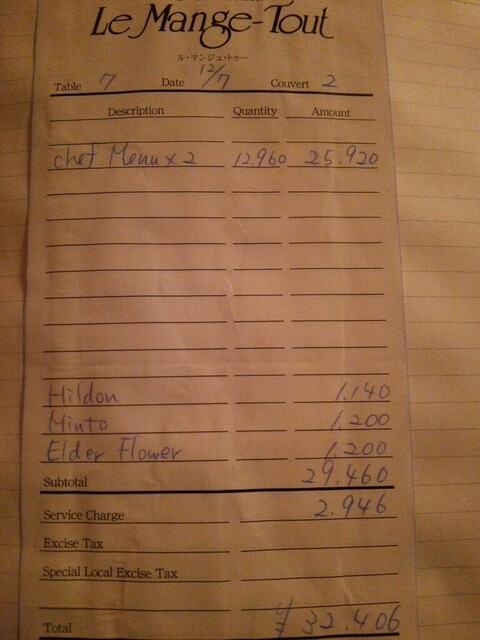 Le Mange-Tout
ル・マンジュ・トゥー
Table 7 Date 12/7 Couvert 2
Description Quantity Amount
chef Menu x 2 12.960 25.920
Hildon 1.140
Minto 1.200
Elder Flower 1.200
Subtotal 29.460
Service Charge 2.946
Excise Tax
Special Local Excise Tax
Total ¥ 32.406